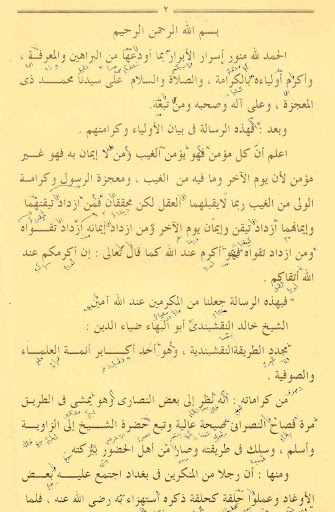 ٢
بسم الله الرحمن الرحيم
الحمد لله منور أسرار الأبرار بما أودعها من البراهين والمعرفة ،
وأكرم أولياءه بالكرامة ، والصلاة والسلام على سيدنا محمد ذى
المعجزة ، وعلى آله وصحبه ومن تبعه .
وبعد : فهذه الرسالة في بيان الأولياء وكرامتهم .
اعلم أن كل مؤمن فهو يؤمن الغيب ومن لا إيمان به فهو غير
مؤمن لأن يوم الآخر وما فيه من الغيب ، ومعجزة الرسول وكرامة
الولى من الغيب ربما لا يقبلهما العقل لكن محققتان فمن ازداد تيقنهما
وإيمانهما ازداد تيقن وإيمان يوم الآخر ومن ازداد إيمانه ازداد تقواه
ومن ازداد تقواه فهو أكرم عند الله كما قال تعالى : إن أكرمكم عند
الله أتقاكم .
فبهذه الرسالة جعلنا من المكرمين عند الله آمين
الشيخ خالد النقشبندى أبو البهاء ضياء الدين :
مجدد الطريقة النقشبندية ، وهو أحد أكابر أئمة العلماء
والصوفية .
من كراماته : أنه نظر إلى بعض النصارى وهو يمشى فى الطريق
مرة فصاح النصرانى صيحة عالية وتبع حضرة الشيخ إلى الزاوية
وأسلم ، وسلك فى طريقته وصار من أهل الحضور ببركته
ومنها : أن رجلا من المنكرين فى بغداد اجتمع عليه بعض
الأوغاد وعملوا حلقة كحلقة ذكره استهزاء به رضى الله عنه ، فلما